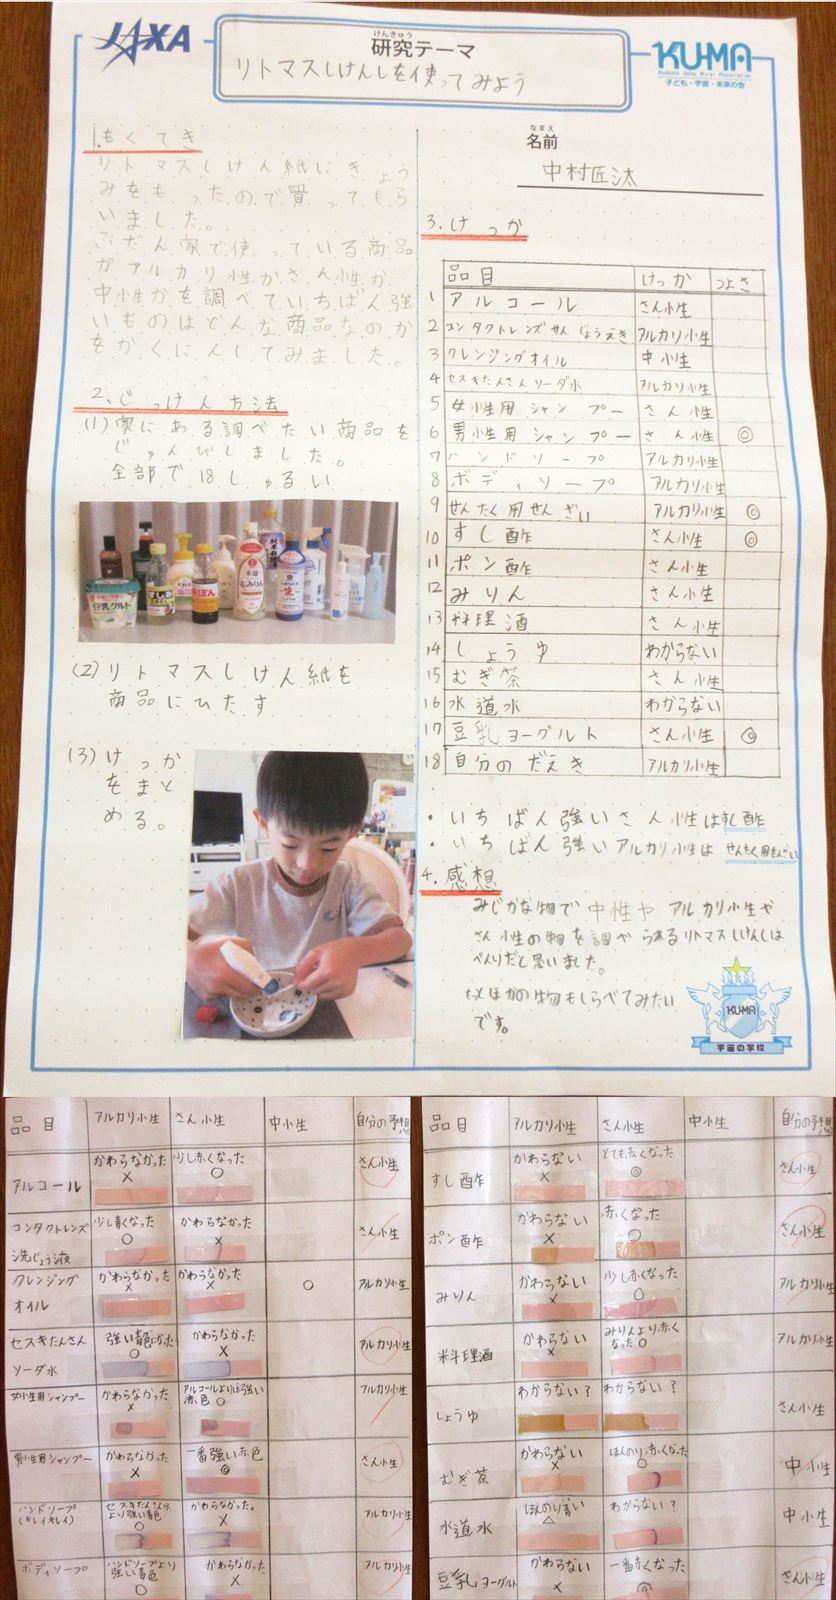 JAXA
けんきゅう
研究テーマ
リトマスしけんしを使ってみよう
KU-MA
Kodomo Uchu Mirai Association
子ども・宇宙・未来の会
1.もくてき
リトマスしけん紙にきょう
みをもったので買ってもら
いました。
ふだん家で使っている商品
がアルカリ性かさん性か
中性かを調べていちばん強
いものはどんな商品なのか
をかくにんしてみました。
2.じっけん方法
(1)家にある調べたい商品を
じゅんびしました。
全部で18しゅるい
豆乳グルト
(2)リトマスしけん紙を
商品にひたす
(3)けっか
をまと
める。
なまえ
名前
中村匠汰
3.けっか
品目 けっか つよさ
1 アルコール さん性
2 コンタクトレンズせんじょうえき アルカリ性
3 クレンジングオイル 中性
4 セスキたんさんソーダ水 アルカリ性
5 女性用シャンプー さん性
6 男性用シャンプー さん性 ◎
7 ハンドソープ アルカリ性
8 ボディソープ アルカリ性
9 せんたく用せんざい アルカリ性 ◎
10 すし酢 さん性 ◎
11 ポン酢 さん性
12 みりん さん性
13 料理酒 さん性
14 しょうゆ わからない
15 むぎ茶 さん性
16 水道水 わからない
17 豆乳ヨーグルト さん性 ◎
18 自分のだえき アルカリ性
・いちばん強いさん性はすし酢
・いちばん強いアルカリ性はせんたく用せんざい
4.感想
みじかな物で中性やアルカリ性や
さん性の物を調べられるリトマスしけんしは
べんりだと思いました。
もっとほかの物もしらべてみたい
です。
KU-MA
宇宙の学校
品目 アルカリ性 さん性 中性 自分の予想
アルコール かわらなかった × 少し赤くなった ○ さん性
コンタクトレンズ洗じょう液 少し青くなった ○ かわらなかった × さん性
クレンジングオイル かわらなかった × かわらなかった × ○ アルカリ性
セスキたんさんソーダ水 強い青色になった ○ かわらなかった × アルカリ性
女性用シャンプー かわらなかった × アルコールよりは強い赤色 ○ アルカリ性
男性用シャンプー かわらなかった × 一番強い赤色 ◎ さん性
ハンドソープ(キレイキレイ) セスキたんさん水より強い青色 ○ かわらなかった。 × アルカリ性
ボディソープ ハンドソープより強い青色 ○ かわらなかった × アルカリ性
品目 アルカリ性 さん性 中性 自分の予想
すし酢 かわらない × とても赤くなった ◎ さん性
ポン酢 かわらない × 赤くなった ○ さん性
みりん かわらない × 少し赤くなった ○ アルカリ性
料理酒 かわらない × みりんより赤くなった ○ アルカリ性
しょうゆ わからない? わからない? さん性
むぎ茶 かわらない × ほんのり赤くなった ○ 中性
水道水 ほんのり青い △ わからない? 中性
豆乳ヨーグルト かわらない × 一番赤くなった ◎ さん性